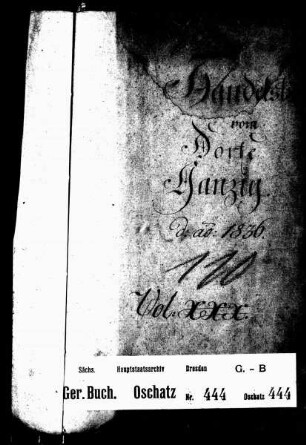 Handels
vom
Dorfe
Ganzig
d. ao. 1836
110
Vol. XXX.
Sächs. Hauptstaatsarchiv Dresden G. - B
Ger. Buch. Oschatz Nr. 444 Oschatz 444